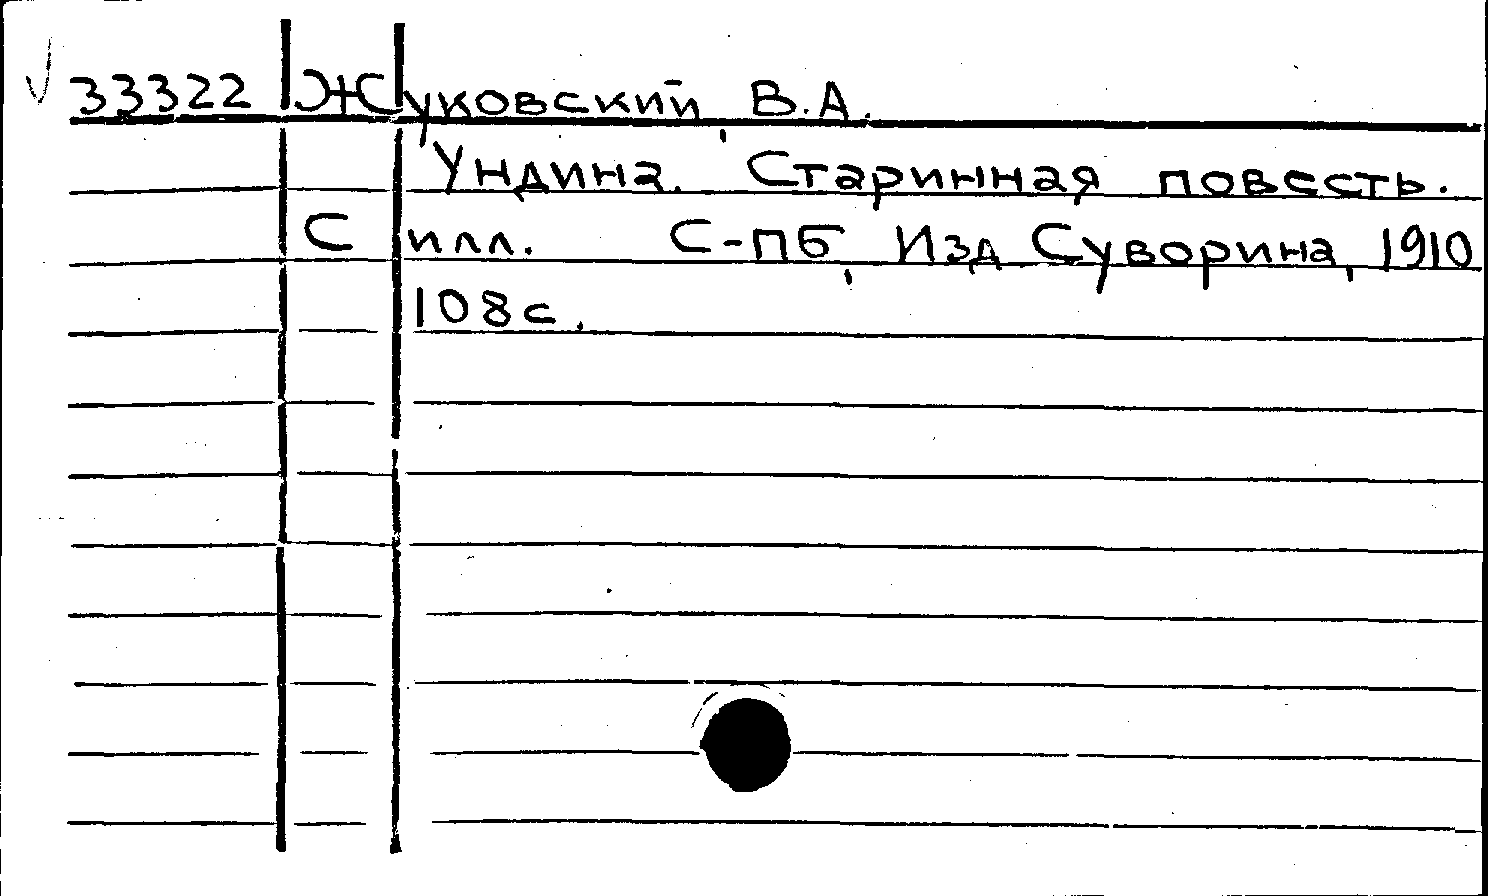 33322 Жуковский, В.А.
Ундина. Старинная повесть.
С илл. С-ПБ, Изд Суворина, 1910
108 с.